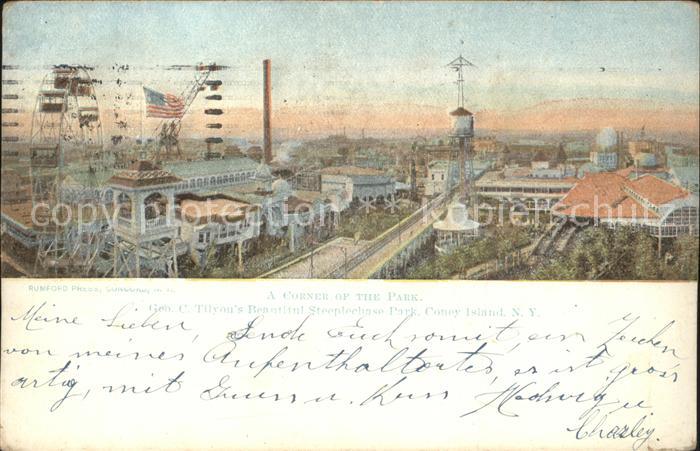 copyright protection ** Kopierschutz
RUMFORD PRESS, CONCORD, N. H.
A CORNER OF THE PARK.
Geo. C. Tilyou's Beautiful Steeplechase Park, Coney Island, N. Y.
Meine Lieben, Sende Euch somit, ein Zeichen
von meines Aufenthaltortes, es ist gross
artig, mit Gruss u. Kuss Hedwig u
Charley.